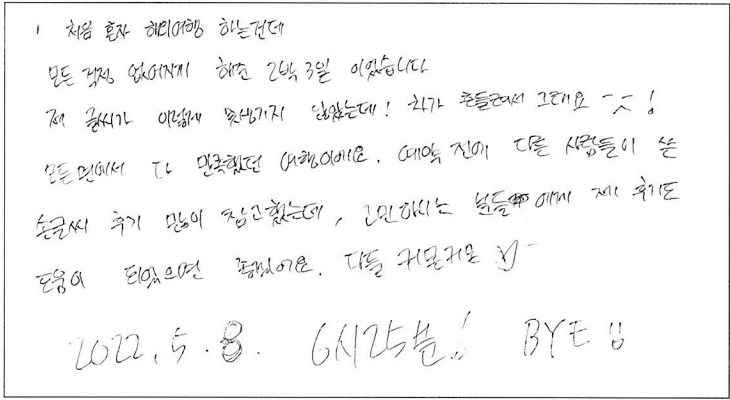 처음 혼자 해외여행 하는건데
모든 걱정 없어지게 해준 2박 3일 이었습니다
제 글씨가 이렇게 못생기지 않았는데! 차가 흔들려서 그래요 ㅡㅅㅡ!
모든 면에서 다 만족했던 여행이에요. 예약 전에 다른 사람들이 쓴
손글씨 후기 많이 참고했는데, 고민하시는 분들 에게 제 후기도
도움이 되었으면 좋겠어요. 다들 커몬커몬
2022. 5. 8. 6시25분!! BYE !!